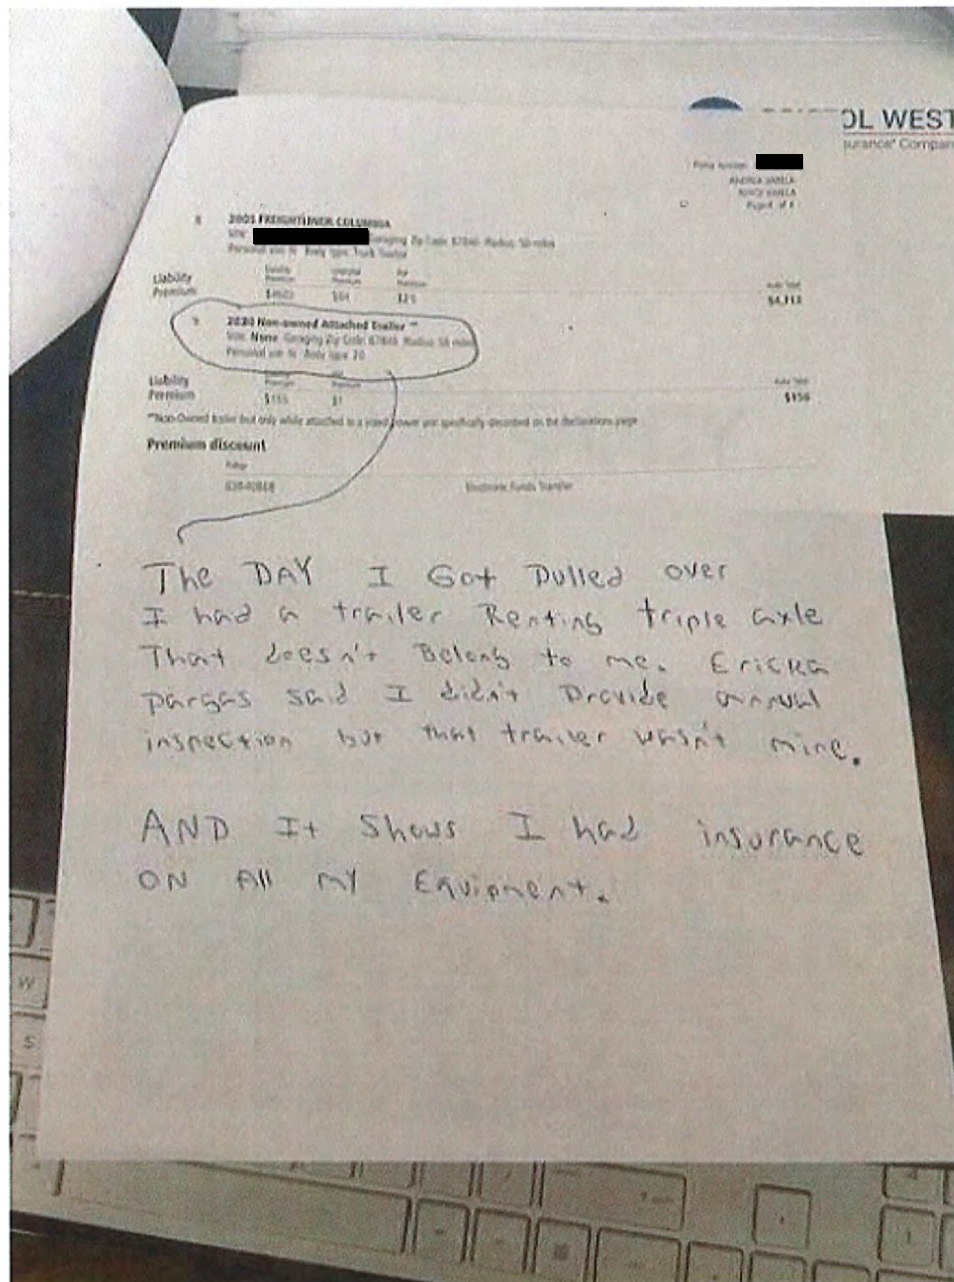 OL WEST
surance® Company
Policy number:
ANDREA VARELA
Page 4 of 4
8 2005 FREIGHTLINER COLUMBIA
VIN: Garaging Zip Code: Radius: 50 miles
Personal use: N Body type: Truck Tractor
Liability
Premium
Premium Premium Premium
Auto Total
$4,713
9 2020 Non-owned Attached Trailer **
VIN: None Garaging Zip Code: Radius: 50 miles
Personal use: N Body type:
Liability
Premium
Premium Premium
Auto Total
$155 $1 $156
**Non-Owned trailer but only while attached to a listed power unit specifically described on the declarations page.
Premium discount
Policy
Electronic Funds Transfer
The DAY I Got Pulled over
I had a trailer Renting triple axle
That doesn't Belong to me. Ericka
pargas said I didn't Provide annual
inspection but that trailer wasn't mine.
AND It Shows I had insurance
ON All my Equipment.
W
S